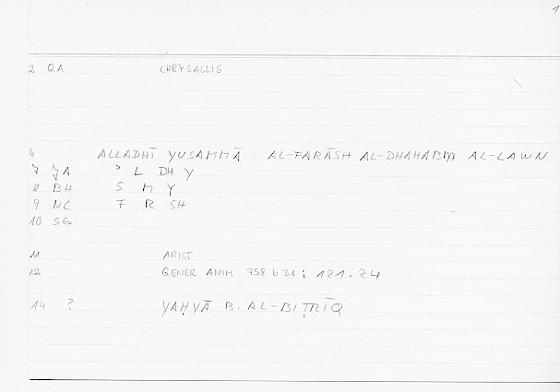 1
2 QA CHRYSALLIS
6 ALLADHĪ YUSAMMĀ AL-FARĀSH AL-DHAHABIYY AL-LAWN
7 ʾ L DH Y
8 BH S M Y
9 NC F R SH
10 SG
11 ARIST
12 GENER ANIM 758 b 31 : 121.24
14 ? YAḤYĀ B. AL-BIṬRĪQ